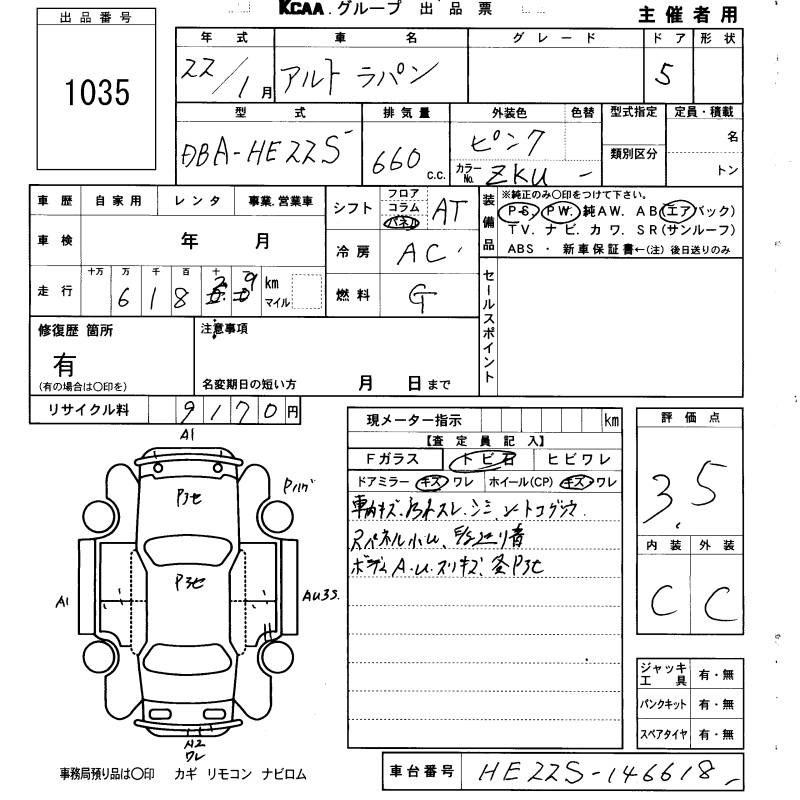 KCAA.グループ 出品票
主催者用
出品番号
1035
年式 車名 グレード ドア 形状
22/1月 アルト ラパン 5
型式 排気量 外装色 色替 型式指定 定員・積載
DBA-HE22S 660 c.c. ピンク 名
カラーNo. ZKU - 類別区分 トン
車歴 自家用 レンタ 事業.営業車
車検 年 月
走行 十万 万 千 百 十 km マイル
6 1 8 2 9
シフト フロア コラム パネル AT
冷房 AC
燃料 G
装備品
※純正のみ○印をつけて下さい。
P-S. P.W. 純AW. AB(エアバック)
TV. ナビ. カワ. SR(サンルーフ)
ABS ・ 新車保証書←(注) 後日送りのみ
セールスポイント
修復歴 箇所
有
(有の場合は○印を)
注意事項
名変期日の短い方 月 日まで
リサイクル料 9170円
現メーター指示 km
【査定員記入】
Fガラス トビ石 ヒビワレ
ドアミラー キズ ワレ ホイール(CP) キズ ワレ
車内キズ.
ボディA.u.スリキズ、
評価点
3.5
内装 外装
C C
A1
P3セ
P3セ
A1
AU3S.
A2
ワレ
ジャッキ工具 有・無
パンクキット 有・無
スペアタイヤ 有・無
事務局預り品は○印 カギ リモコン ナビロム
車台番号 HE22S-146618